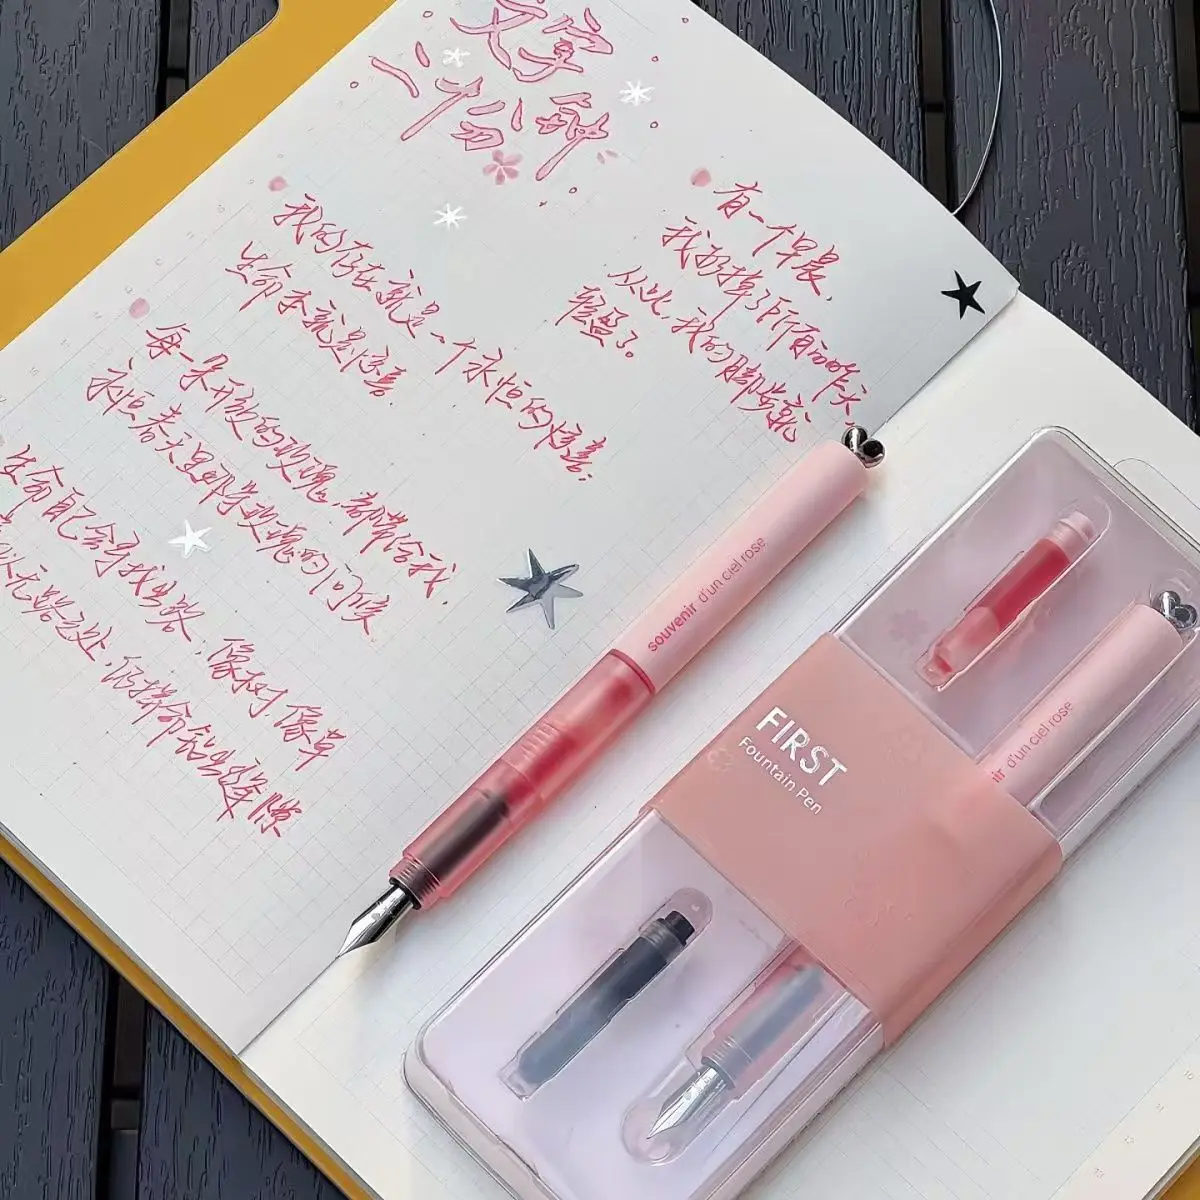 文字
二十分钟
有一个早晨，
我扔掉了所有的昨天，
从此，我的脚步就
轻盈了。
我的存在就是一个永恒的惊喜，
生命本就是惊喜。
每一朵开放的玫瑰，都带给我，
永恒春天里那朵玫瑰的问候
生命自己会寻找出路，像树像草
无路之处，仍拼命钻出缝隙
souvenir d'un ciel rose
FIRST
Fountain Pen
ir d'un ciel rose